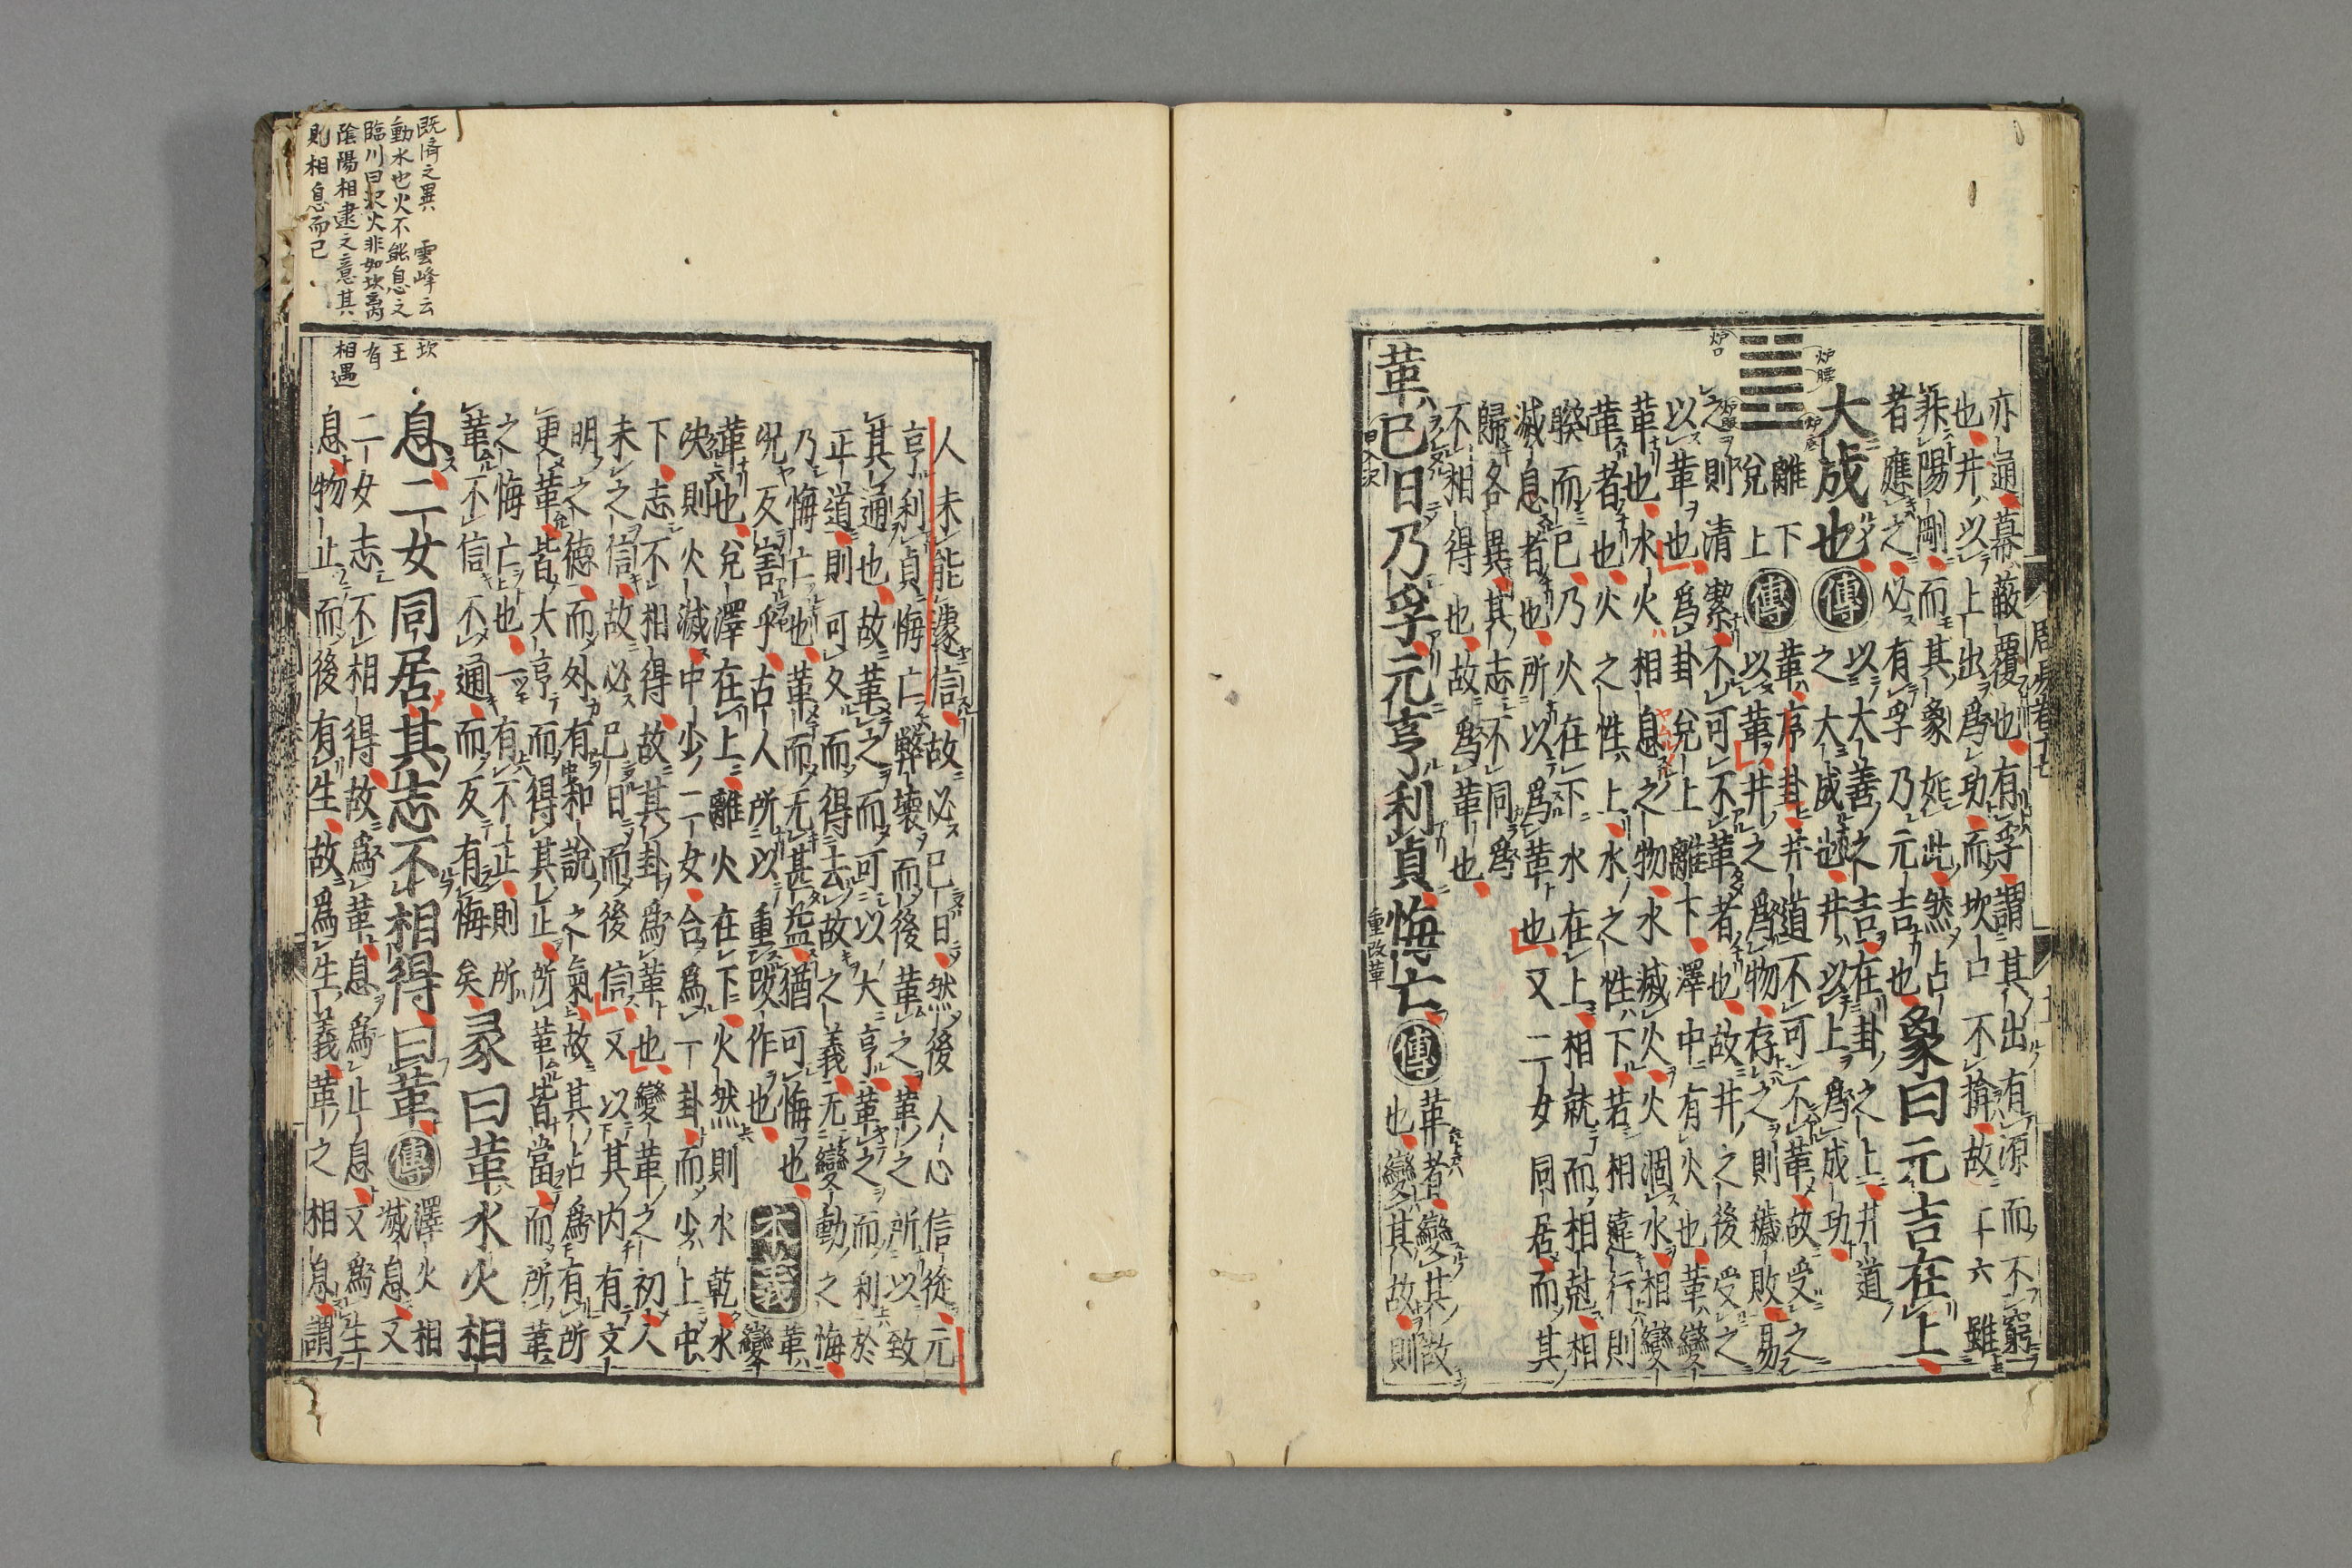 亦通幕蔽覆也有孚謂其出有源而不窮
也井以上出爲功而坎口不揜故上六雖
非陽剛而其象如此然占
者應之必有孚乃元吉也象曰元吉在上
大成也傳以大善之吉在卦之上井道
之大成也井以上爲成功
離下
兌上
傳革序卦井道不可不革故受之
以革井之爲物存之則穢敗易
之則清潔不可不革者也故井之後受之
以革也爲卦兌上離下澤中有火也革變
革也水火相息之物水滅火火涸水相變
革者也火之性上水之性下若相違行則
睽而已乃火在下水在上相就而相剋相
滅息者也所以爲革也又二女同居而其
歸各異其志不同爲
不相得也故爲革也
革已日乃孚元亨利貞悔亡傳革者變其故
也變其故則
重改革
炉口
炉腰
人未能遽信故必已日然後人心信從元
亨利貞悔亡弊壞而後革之革之所以致
其通也故革之而可以大亨革之而利於
正道則可久而得去故之義无變動之悔
乃悔亡也革而无甚益猶可悔也
況反害乎古人所以重改作也本義革變
革也兌澤在上離火在下火然則水乾水
決則火滅中少二女合爲一卦而少上中
下志不相得故其卦爲革也變革之初人
未之信故必已日而後信又以其内有文
明之德而外有和說之氣故其占爲有所
更革皆大亨而得其正所革皆當而所革
之悔亡也一有不正則所
革不信不通而反有悔矣彖曰革水火相
息二女同居其志不相得曰革傳澤火相
滅息又
二女志不相得故爲革息爲止息又爲生
息物止而後有生故爲生義革之相息謂
既済之異 雲峰云坎
動水也火不能息之王
臨川曰水火非如坎离有
陰陽相逮之意其相遇
則相息而已